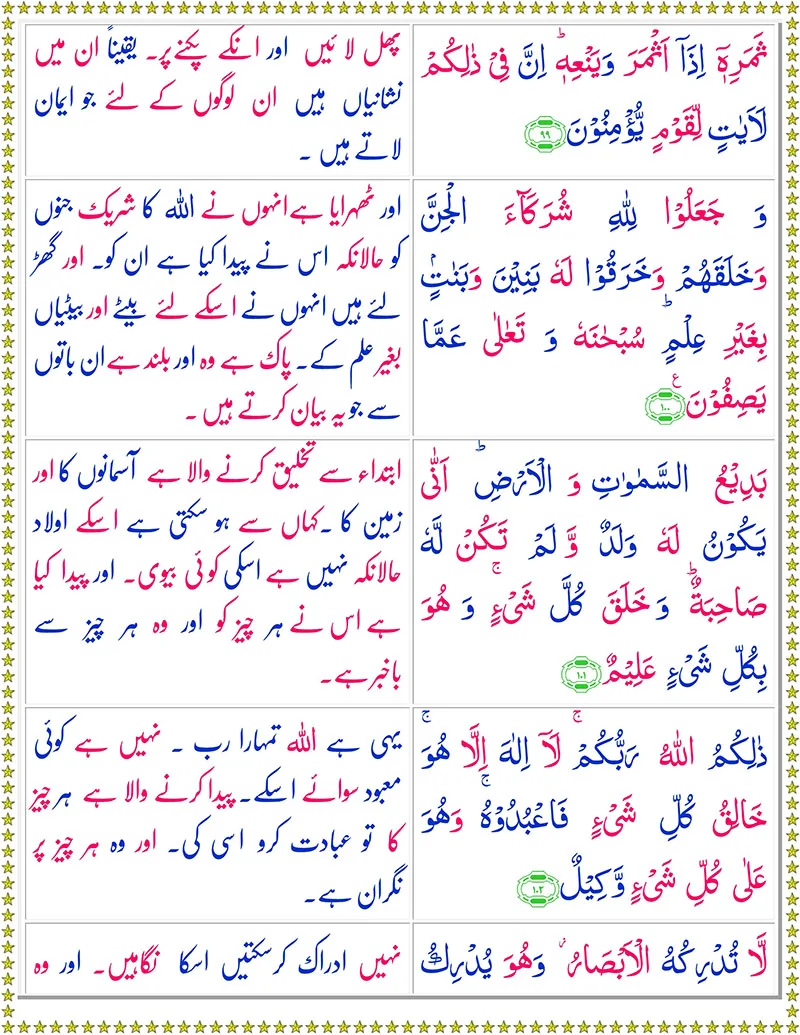 ثَمَرِهٖۤ اِذَاۤ اَثۡمَرَ وَيَنۡعِهٖ ؕ اِنَّ فِىۡ ذٰلِكُمۡ
لَاٰيٰتٍ لِّقَوۡمٍ يُّؤۡمِنُوۡنَ ۹۹
پھل لائیں اور انکے پکنے پر۔ یقیناً ان میں
نشانیاں ہیں ان لوگوں کے لئے جو ایمان
لاتے ہیں ۔
وَ جَعَلُوۡا لِلّٰهِ شُرَكَآءَ الۡجِنَّ
وَخَلَقَهُمۡ وَخَرَقُوۡا لَهٗ بَنِيۡنَ وَبَنٰتٍۢ
بِغَيۡرِ عِلۡمٍ ؕ سُبۡحٰنَهٗ وَ تَعٰلٰى عَمَّا
يَصِفُوۡنَ ۱۰۰ ع
اور ٹھہرایا ہے انہوں نے اللہ کا شریک جنوں
کو حالانکہ اس نے پیدا کیا ہے ان کو۔ اور گھڑ
لئے ہیں انہوں نے اسکے لئے بیٹے اور بیٹیاں
بغیر علم کے۔ پاک ہے وہ اور بلند ہے ان باتوں
سے جو یہ بیان کرتے ہیں ۔
بَدِيۡعُ السَّمٰوٰتِ وَ الۡاَرۡضِ ؕ اَنّٰى
يَكُوۡنُ لَهٗ وَلَدٌ وَّ لَمۡ تَكُنۡ لَّهٗ
صَاحِبَةٌ ؕ وَ خَلَقَ كُلَّ شَىۡءٍ ۚ وَ هُوَ
بِكُلِّ شَىۡءٍ عَلِيۡمٌ ۱۰۱
ابتداء سے تخلیق کرنے والا ہے آسمانوں کا اور
زمین کا ۔ کہاں سے ہو سکتی ہے اسکے اولاد
حالانکہ نہیں ہے اسکی کوئی بیوی۔ اور پیدا کیا
ہے اس نے ہر چیز کو اور وہ ہر چیز سے
باخبر ہے۔
ذٰلِكُمُ اللّٰهُ رَبُّكُمۡ ۚ لَاۤ اِلٰهَ اِلَّا هُوَ ۚ
خَالِقُ كُلِّ شَىۡءٍ فَاعۡبُدُوۡهُ ۚ وَهُوَ
عَلٰى كُلِّ شَىۡءٍ وَّكِيۡلٌ ۱۰۲
یہی ہے اللہ تمہارا رب ۔ نہیں ہے کوئی
معبود سوائے اسکے۔ پیدا کرنے والا ہے ہر چیز
کا تو عبادت کرو اسی کی۔ اور وہ ہر چیز پر
نگران ہے۔
لَّا تُدۡرِكُهُ الۡاَبۡصَارُ ۖ وَهُوَ يُدۡرِكُ
نہیں ادراک کرسکتیں اسکا نگاہیں۔ اور وہ